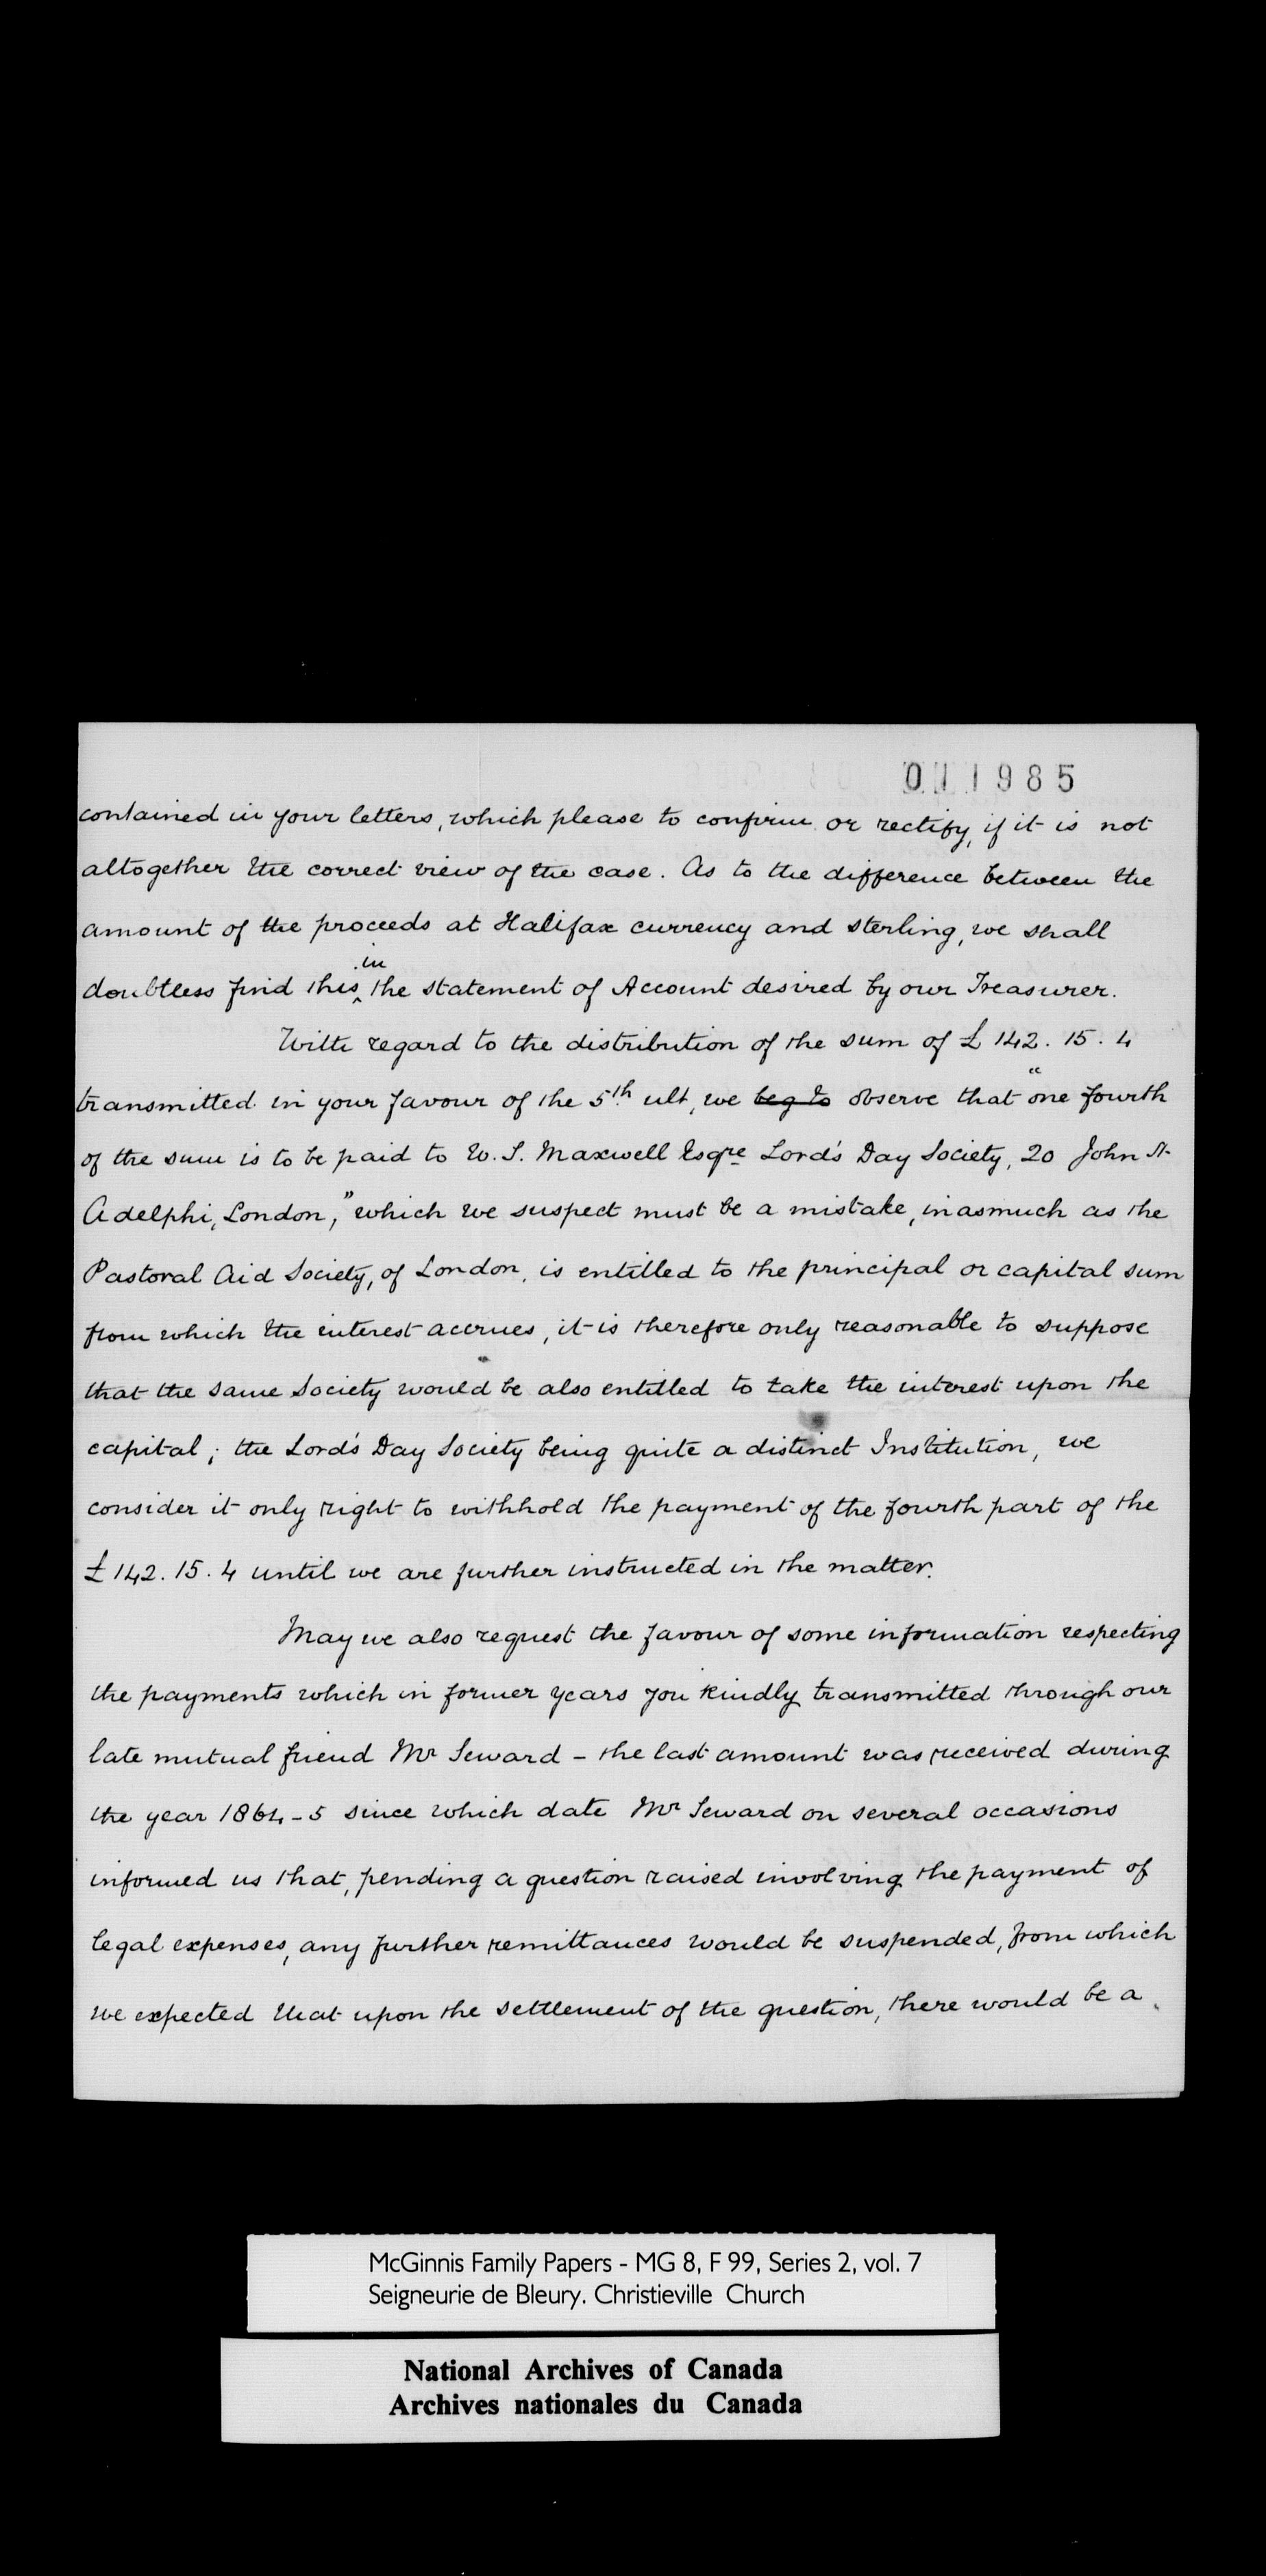 011985
contained in your letters, which please to confirm or rectify, if it is not
altogether the correct view of the case. As to the difference between the
amount of the proceeds at Halifax currency and sterling, we shall
doubtless find this in the statement of Account desired by our Treasurer.
With regard to the distribution of the sum of £142.15.4
transmitted in your favour of the 5th ult, we beg to observe that "one fourth
of the sum is to be paid to W. S. Maxwell Esqre Lord's Day Society, 20 John St
Adelphi, London," which we suspect must be a mistake, inasmuch as the
Pastoral Aid Society, of London, is entitled to the principal or capital sum
from which the interest accrues, it is therefore only reasonable to suppose
that the same Society would be also entitled to take the interest upon the
capital; the Lord's Day Society being quite a distinct Institution, we
consider it only right to withhold the payment of the fourth part of the
£142.15.4 until we are further instructed in the matter.
May we also request the favour of some information respecting
the payments which in former years you kindly transmitted through our
late mutual friend Mr Seward - the last amount was received during
the year 1864-5 since which date Mr Seward on several occasions
informed us that, pending a question raised involving the payment of
legal expenses, any further remittances would be suspended, from which
we expected that upon the settlement of the question, there would be a
McGinnis Family Papers - MG 8, F 99, Series 2, vol. 7
Seigneurie de Bleury. Christieville Church
National Archives of Canada
Archives nationales du Canada